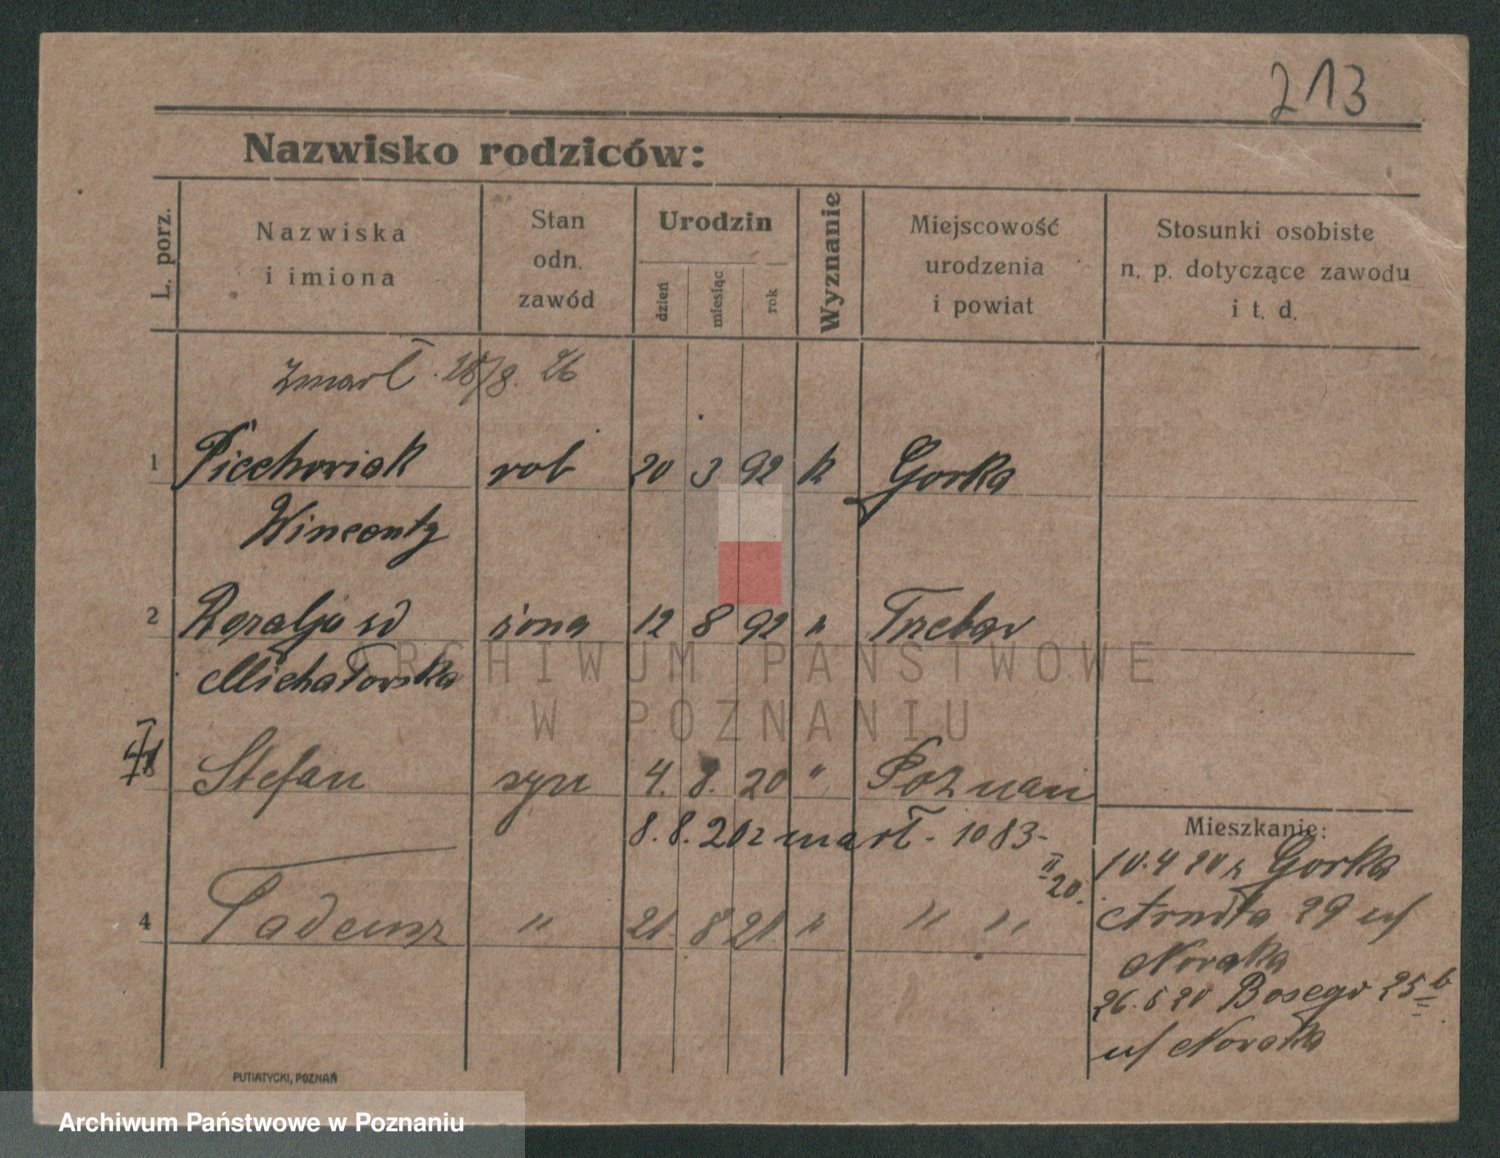 213
Nazwisko rodziców:
L. porz.
Nazwiska
i imiona
Stan
odn.
zawód
Urodzin
dzień
miesiąc
rok
Wyznanie
Miejscowość
urodzenia
i powiat
Stosunki osobiste
n. p. dotyczące zawodu
i t. d.
zmarł 28/8. 26
1 Piechowiak rob 20 3 92 k Gorka
Wincenty
2 Rozalja zd żona 12 8 92 " Trzebaw
Michałowska
Stefan syn 4. 8. 20 " Poznań
8. 8. 20 zmarł - 1083-
II
20.
4 Tadeusz " 21 8 21 " " "
Mieszkanie:
10.4 20 z Gorka
29 u/
Nowaka
26.5 20 Bosego 25 b
u/ Nowaka
PUTIATYCKI, POZNAŃ
ARCHIWUM PAŃSTWOWE
W POZNANIU
Archiwum Państwowe w Poznaniu